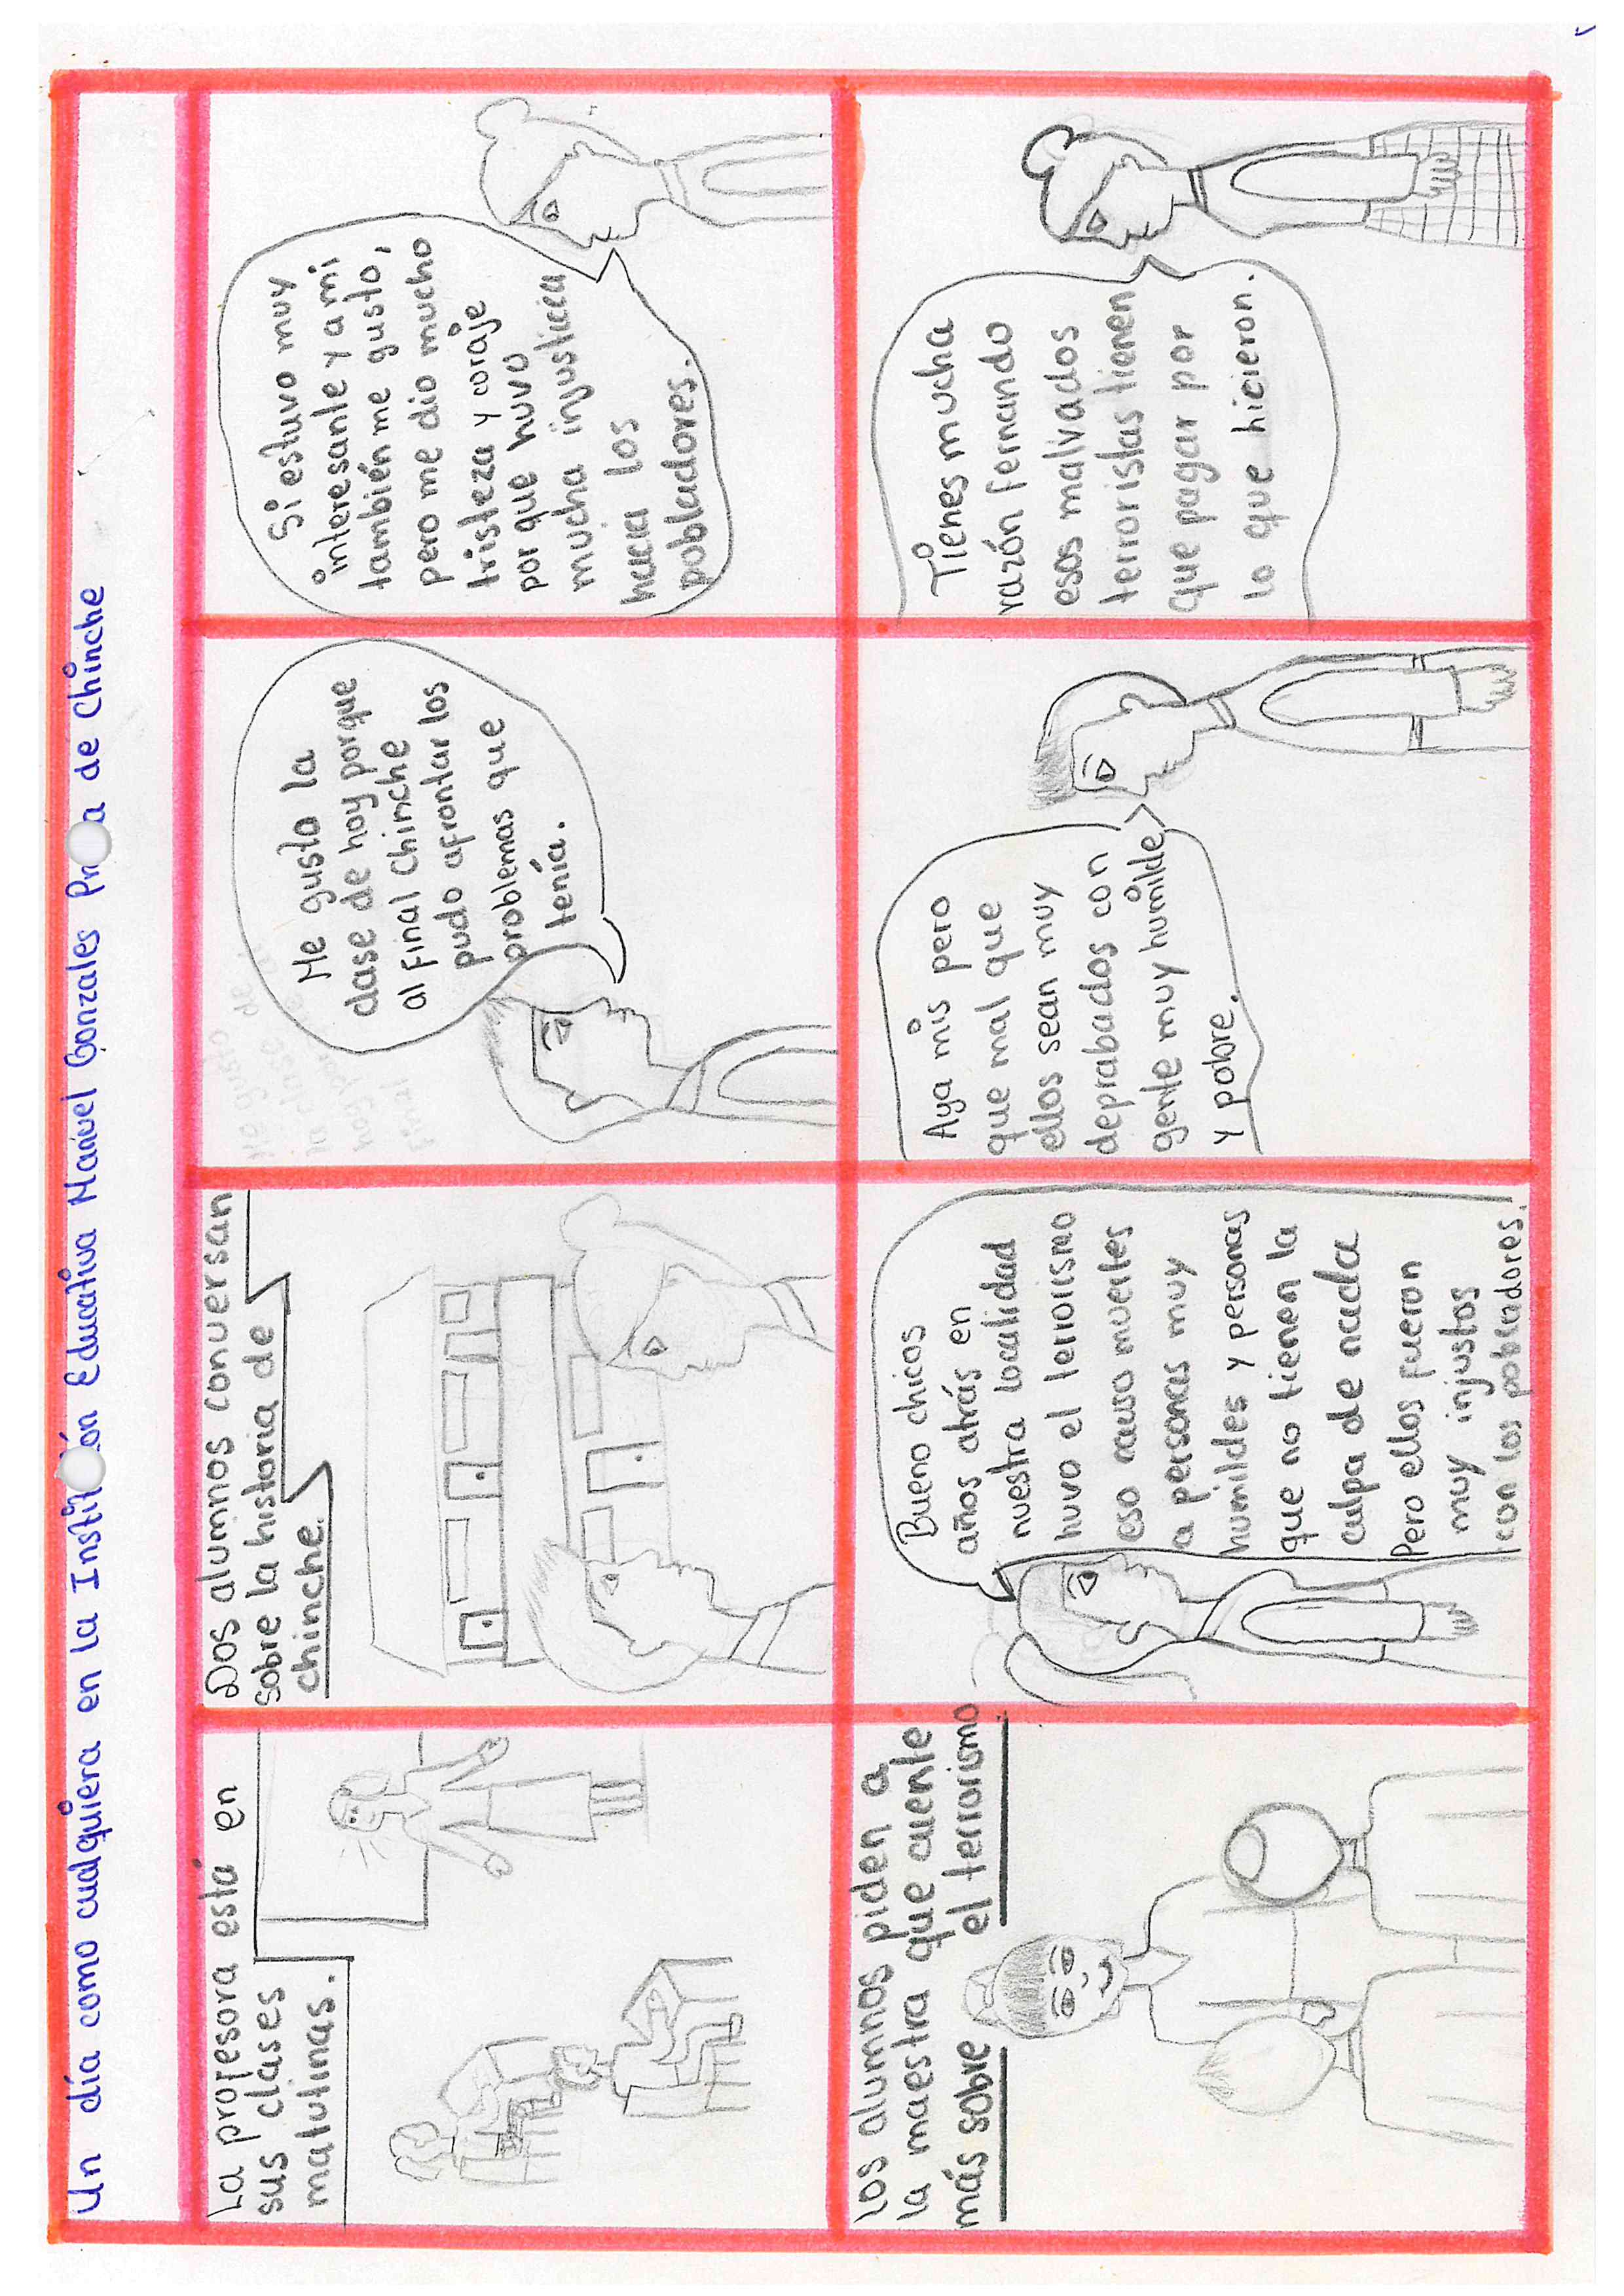 Un día como cualquiera en la Institución Educativa Manuel Gonzales Prada de Chinche
La profesora está en
sus clases
matutinas.
Dos alumnos conversan
sobre la historia de
chinche.
Me gusto la
clase de hoy porque
al final chinche
pudo afrontar los
problemas que
tenía.
Si estuvo muy
interesante y a mi
también me gusto,
pero me dio mucho
tristeza y coraje
por que huvo
mucha injusticia
hacia los
pobladores.
Los alumnos piden a
la maestra que cuente
más sobre el terrorismo
Bueno chicos
años atrás en
nuestra localidad
huvo el terrorismo
eso causo muertes
a personas muy
humildes y personas
que no tienen la
culpa de nada
Pero ellos fueron
muy injustos
con los pobladores.
Aya mis pero
que mal que
ellos sean muy
deprabados con
gente muy humilde
y pobre.
Tienes mucha
razón Fernando
esos malvados
terroristas tienen
que pagar por
lo que hicieron.